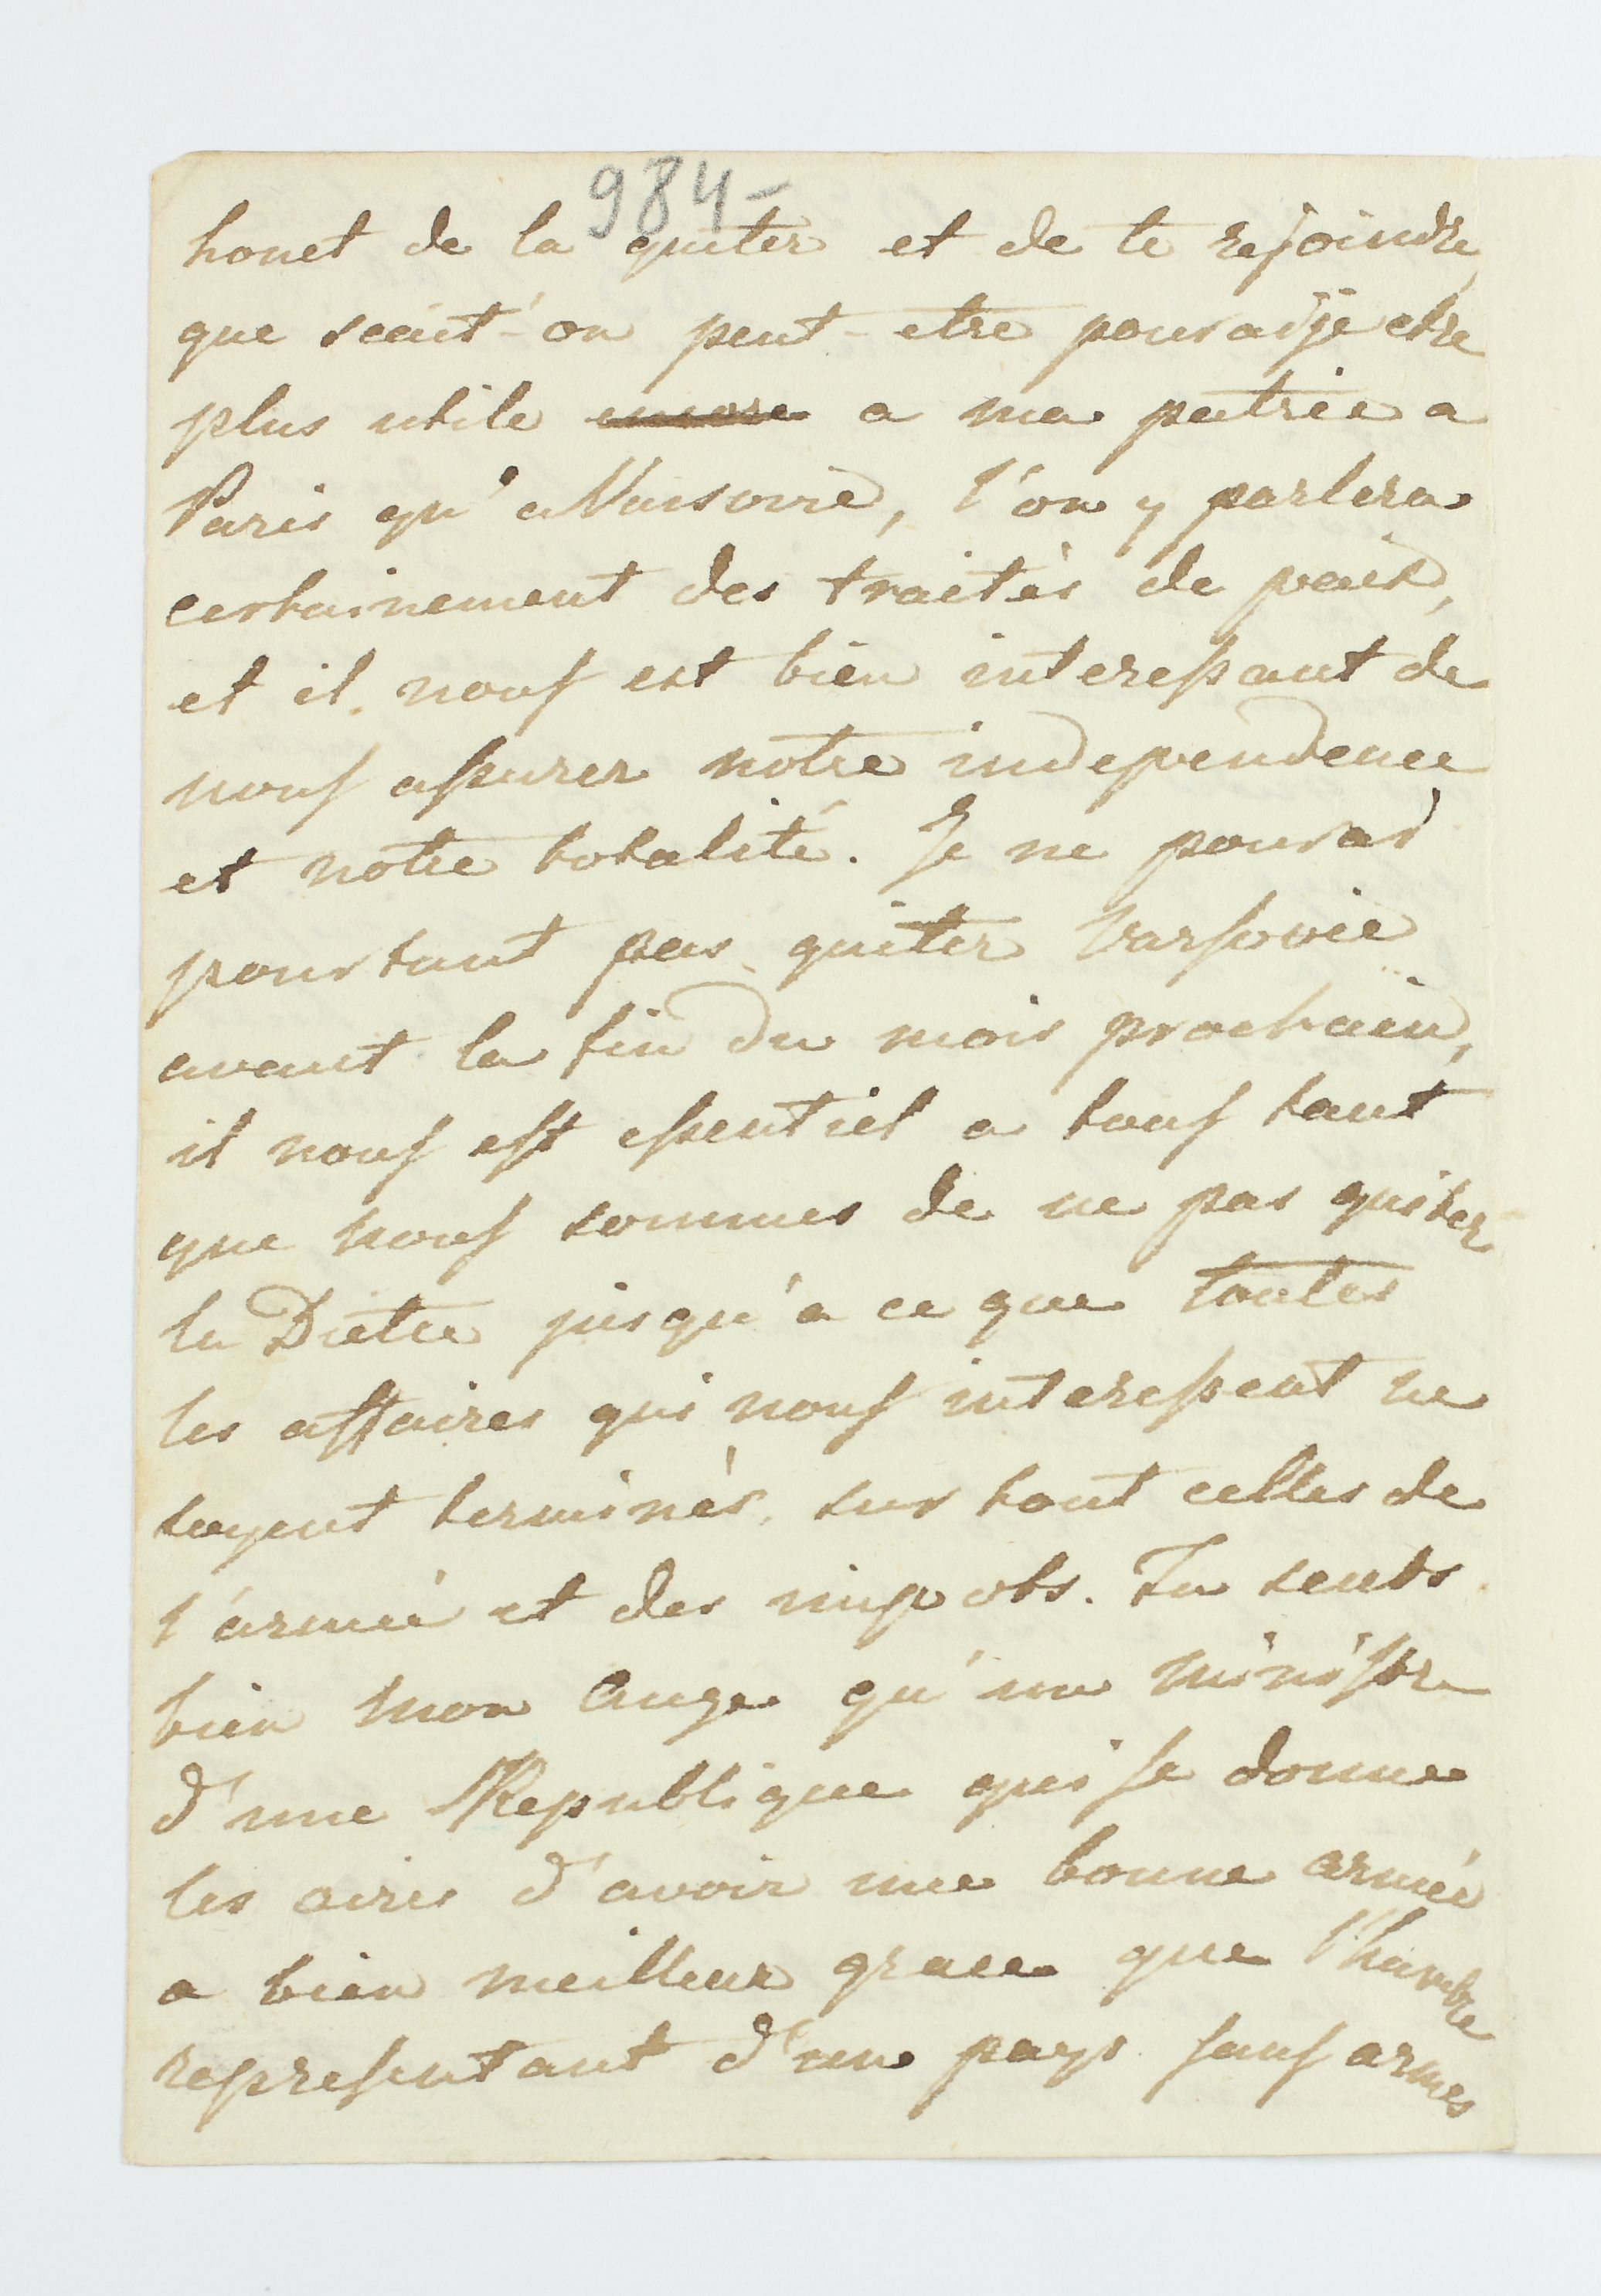 984-
honet de la quiter et de te rejoindre,
que sceut-'on peut-etre pouraije etre
plus utile encore a ma patrie a
Paris qu'a Varsovie, l'on y parlera
certainement des traités de paix,
et il nouſ est bien intereſsant de
nouſ aſsurer notre independence
et notre totalité. Je ne pourai
pourtant pas quiter Varſovie
avant la fin du mois prochain,
il nouſ eſt eſsentiel a touſ tant
que nouſ sommes de ne pas quiter
la Diette jusqu'a ce que toutes
les affaires qui nouſ intereſsent ne
soyent terminés, sur tout celles de
l'armée et des impots. Tu sents
bien mon Ange qu'un Miniſtre
d'une Republique qui ſe donne
les aires d'avoir une bonne armée
a bien meilleur grace que l'humble
repreſentant d'un pays ſanſ armes